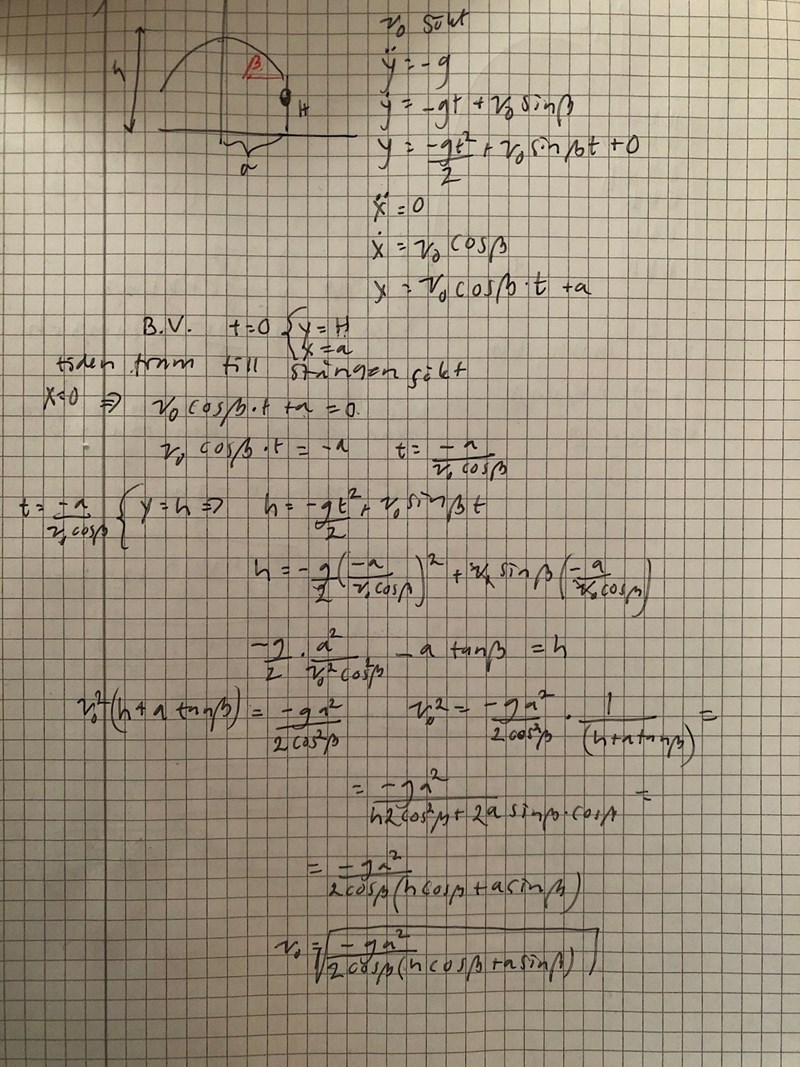 v₀ sökt
h
β
H
a
ÿ = -g
ẏ = -gt + v₀ sinβ
y = -gt²/2 + v₀ sinβt + 0
ẍ = 0
ẋ = v₀ cosβ
x = v₀ cosβ·t + a
B.V. t=0 { y = H
x = a
tiden fram till stången sökt
x=0 ⇒ v₀ cosβ·t + a = 0.
v₀ cosβ·t = -a t = -a/(v₀ cosβ)
t = -a/(v₀ cosβ) { y = h ⇒ h = -gt²/2 + v₀ sinβ t
h = -g/2 (-a/(v₀ cosβ))² + v₀ sinβ (-a/(v₀ cosβ))
-g/2 · a²/(v₀² cos²β) - a tanβ = h
v₀² (h + a tanβ) = -ga²/(2cos²β) v₀² = -ga²/(2cos²β) · 1/(h+a tanβ) =
= -ga²/(h2cos²β + 2a sinβ·cosβ) =
= -ga²/(2cosβ(h cosβ + a sinβ))
v₀ = √(-ga²/(2cosβ(h cosβ + a sinβ)))